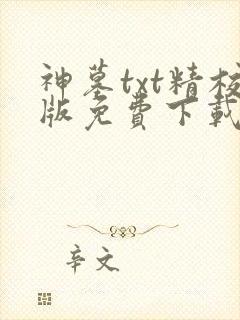 神墓txt精校
版免费下载
辛文